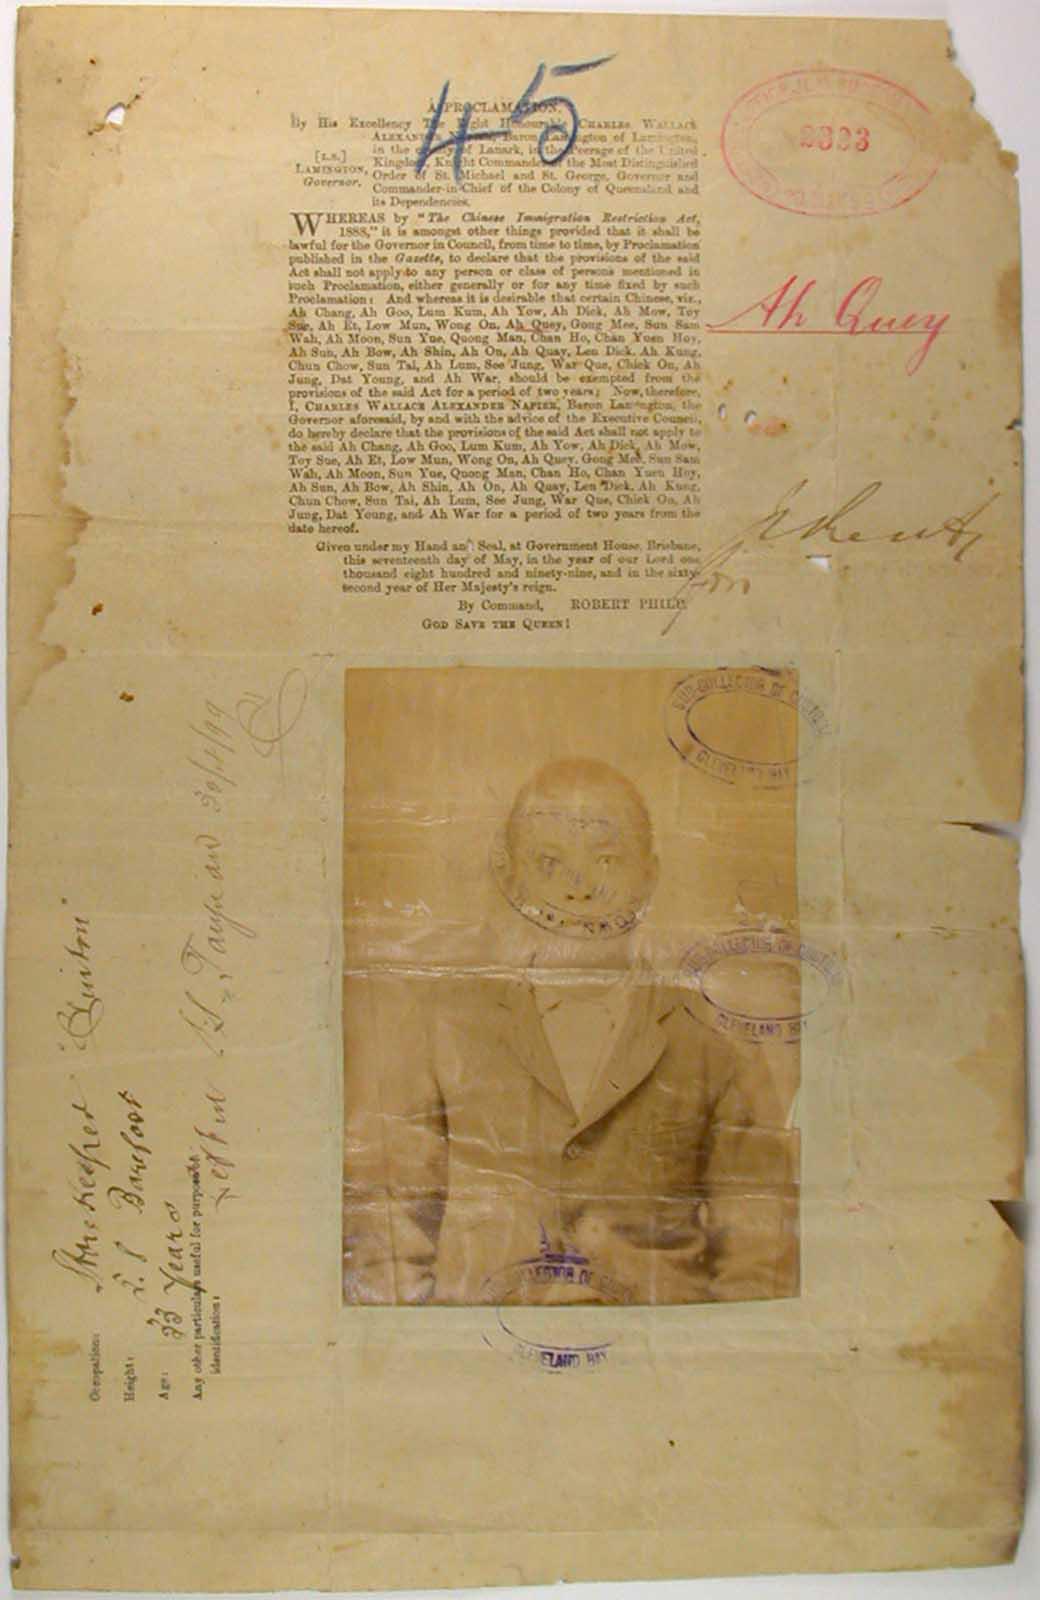 45
A PROCLAMATION.
By His Excellency The Right Honourable CHARLES WALLACE
ALEXANDER NAPIER, Baron Lamington of Lamington,
in the county of Lanark, in the Peerage of the United
[L.S.]
LAMINGTON,
Governor.
Kingdom, Knight Commander of the Most Distinguished
Order of St. Michael and St. George, Governor and
Commander-in-Chief of the Colony of Queensland and
its Dependencies.
WHEREAS by "The Chinese Immigration Restriction Act,
1888," it is amongst other things provided that it shall be
lawful for the Governor in Council, from time to time, by Proclamation
published in the Gazette, to declare that the provisions of the said
Act shall not apply to any person or class of persons mentioned in
such Proclamation, either generally or for any time fixed by such
Proclamation: And whereas it is desirable that certain Chinese, viz.,
Ah Chang, Ah Goo, Lum Kum, Ah Yow, Ah Dick, Ah Mow, Toy
Sue, Ah Et, Low Mun, Wong On, Ah Quey, Gong Mee, Sun Sam
Wah, Ah Moon, Sun Yue, Quong Man, Chan Ho, Chan Yuen Hoy,
Ah Sun, Ah Bow, Ah Shin, Ah On, Ah Quay, Len Dick, Ah Kung,
Chun Chow, Sun Tai, Ah Lum, See Jung, War Que, Chick On, Ah
Jung, Dat Young, and Ah War, should be exempted from the
provisions of the said Act for a period of two years; Now, therefore,
I, CHARLES WALLACE ALEXANDER NAPIER, Baron Lamington, the
Governor aforesaid, by and with the advice of the Executive Council,
do hereby declare that the provisions of the said Act shall not apply to
the said Ah Chang, Ah Goo, Lum Kum, Ah Yow, Ah Dick, Ah Mow,
Toy Sue, Ah Et, Low Mun, Wong On, Ah Quey, Gong Mee, Sun Sam
Wah, Ah Moon, Sun Yue, Quong Man, Chan Ho, Chan Yuen Hoy,
Ah Sun, Ah Bow, Ah Shin, Ah On, Ah Quay, Len Dick, Ah Kung,
Chun Chow, Sun Tai, Ah Lum, See Jung, War Que, Chick On, Ah
Jung, Dat Young, and Ah War for a period of two years from the
date hereof.
Given under my Hand and Seal, at Government House, Brisbane,
this seventeenth day of May, in the year of our Lord one
thousand eight hundred and ninety-nine, and in the sixty-
second year of Her Majesty's reign.
By Command, ROBERT PHILP.
GOD SAVE THE QUEEN!
Ah Quey
SUB-COLLECTOR OF CUSTOMS
CLEVELAND BAY
SUB-COLLECTOR OF CUSTOMS
CLEVELAND BAY
SUB-COLLECTOR OF CUSTOMS
CLEVELAND BAY
Occupation: Storekeeper
Height: Barefoot
Age: 33 Years
Any other particulars useful for purposes
identification:
Left in S.S.